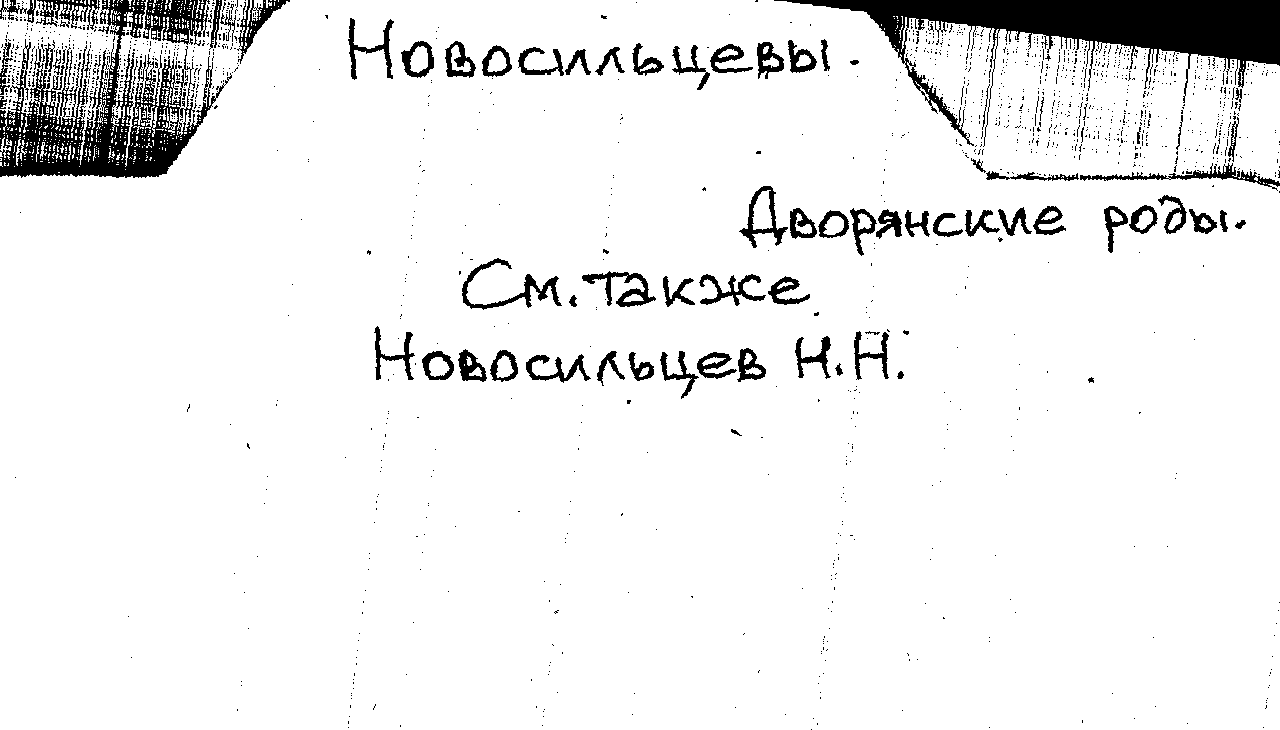 Новосильцевы.
Дворянские роды.
См. также
Новосильцев Н.Н.